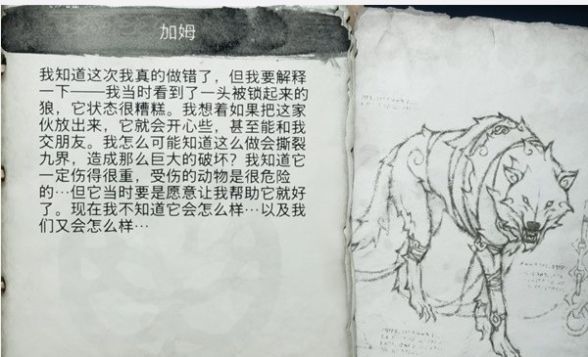 加姆
我知道这次我真的做错了，但我要解释
一下——我当时看到了一头被锁起来的
狼，它状态很糟糕。我想着如果把这家
伙放出来，它就会开心些，甚至能和我
交朋友。我怎么可能知道这么做会撕裂
九界，造成那么巨大的破坏？我知道它
一定伤得很重，受伤的动物是很危险
的…但它当时要是愿意让我帮助它就好
了。现在我不知道它会怎么样…以及我
们又会怎么样…